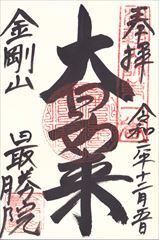 奉拝
令和二年十二月五日
大日如来
金剛山
最勝院